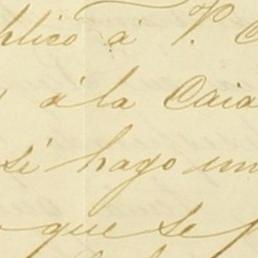 plico á V.
á la Caia
si hago un
que se